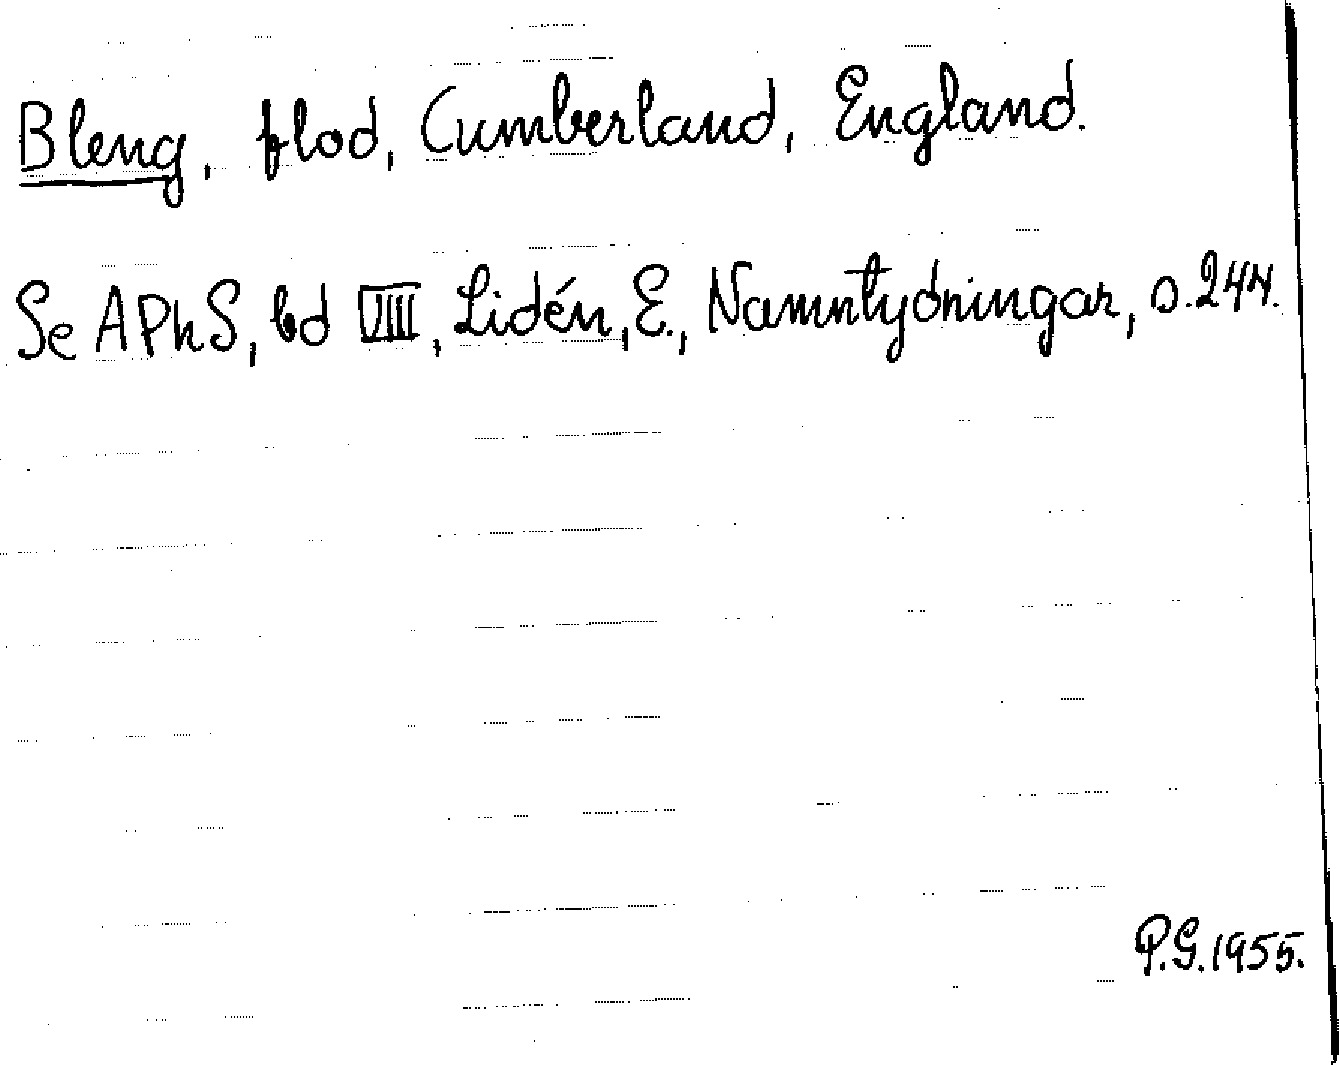 Bleng, flod, Cumberland, England.
Se APhS, bd VIII, Lidén, E., Namntydningar, s. 244.
P.G. 1955.